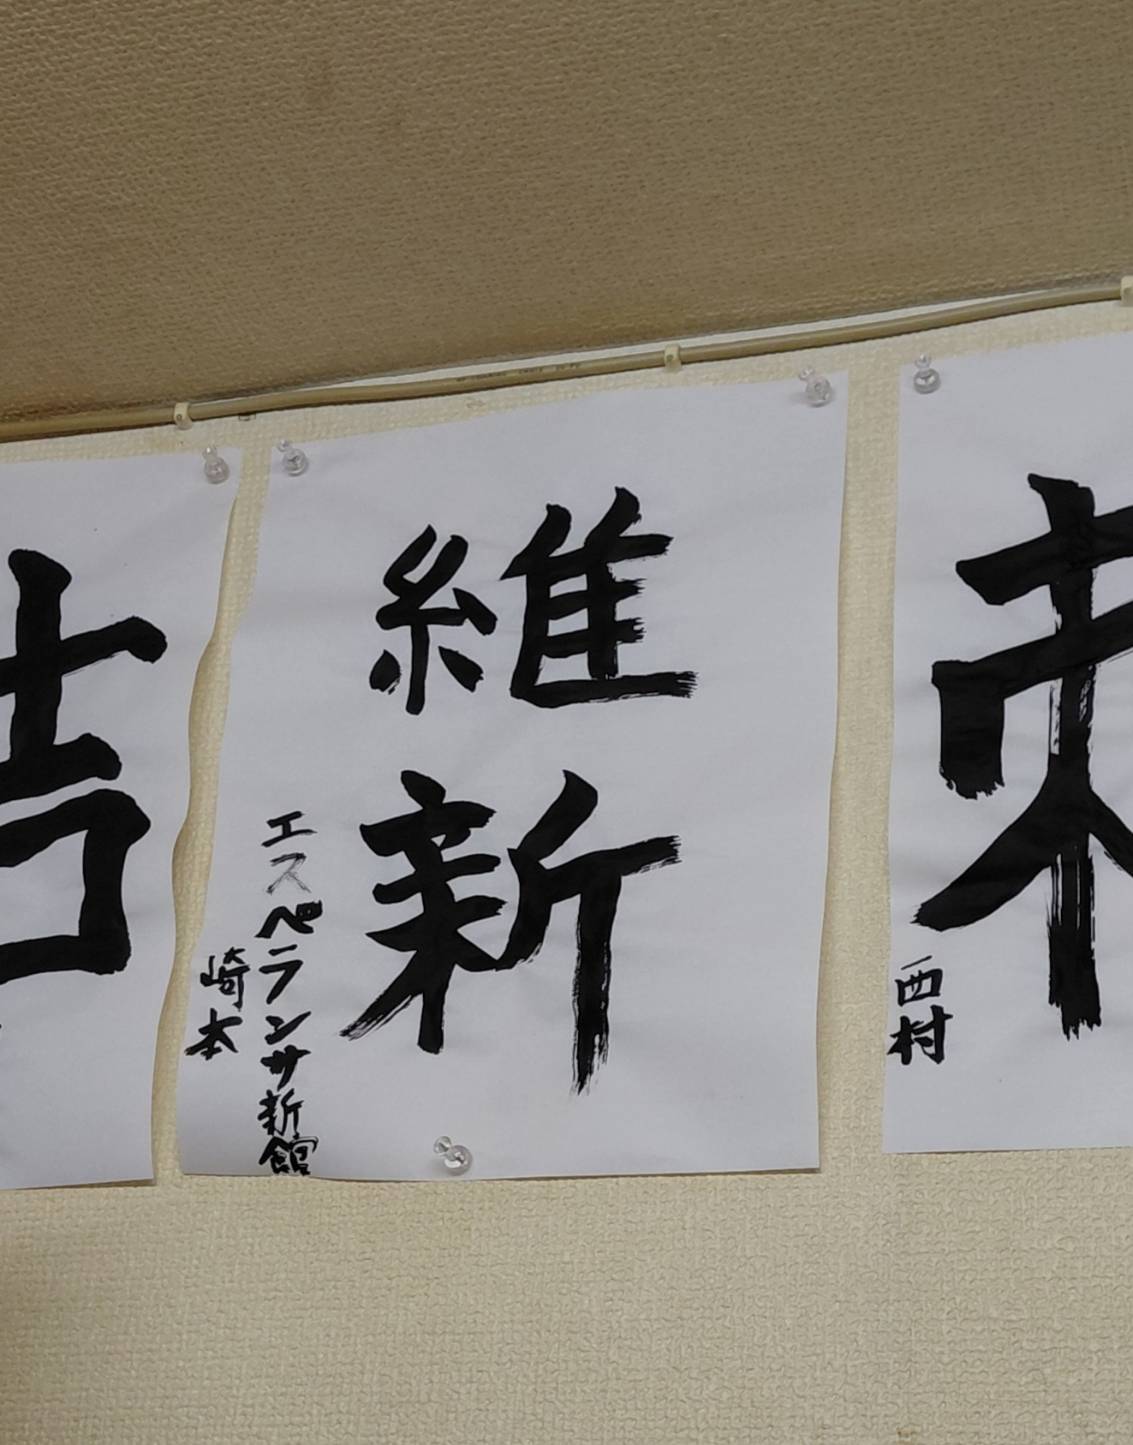 西村
維新
エスペランサ新館
崎本